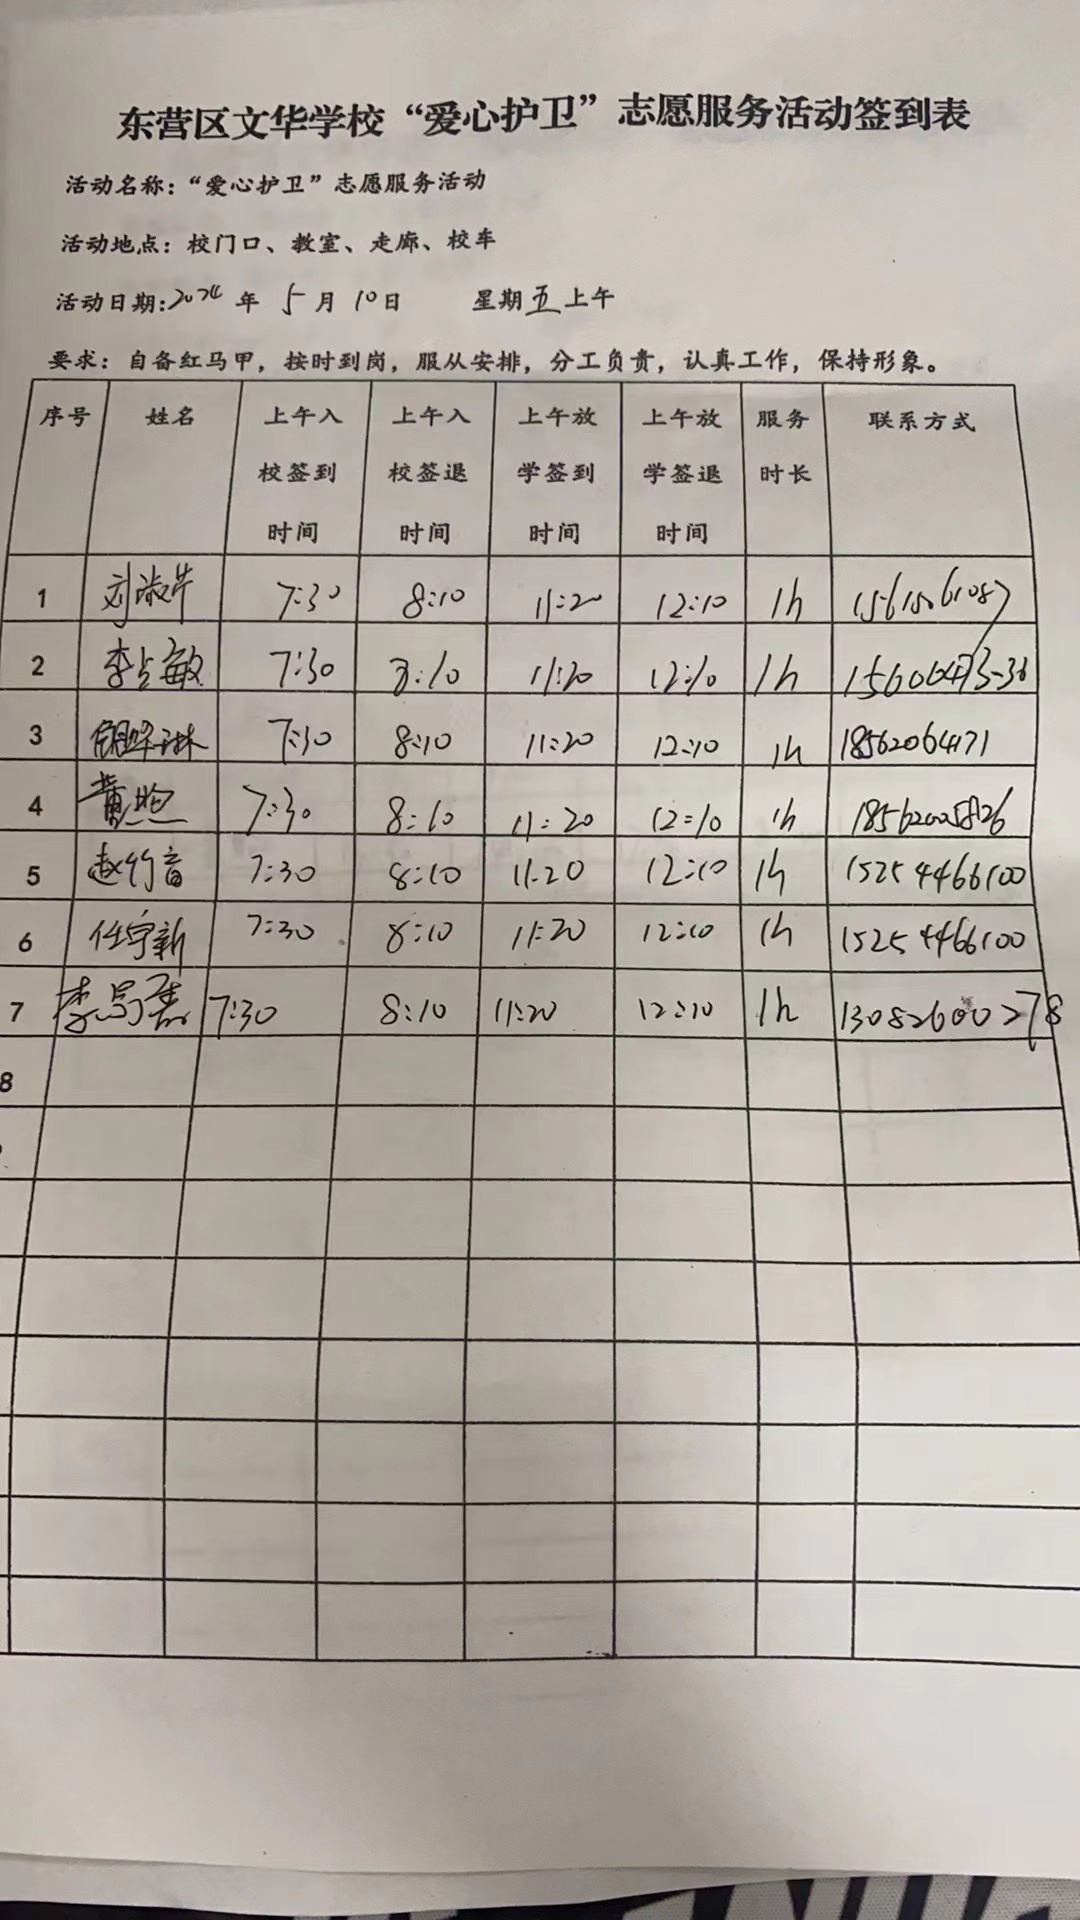 东营区文华学校“爱心护卫”志愿服务活动签到表
活动名称：“爱心护卫”志愿服务活动
活动地点：校门口、教室、走廊、校车
活动日期:2024 年 5 月 10 日 星期五上午
要求：自备红马甲，按时到岗，服从安排，分工负责，认真工作，保持形象。
序号 姓名 上午入校签到时间 上午入校签退时间 上午放学签到时间 上午放学签退时间 服务时长 联系方式
1 刘淑芹 7:30 8:10 11:20 12:10 1h 15615061087
2 李占敏 7:30 8:10 11:20 12:10 1h
3 7:30 8:10 11:20 12:10 1h 18562064171
4 7:30 8:10 11:20 12:10 1h
5 赵竹音 7:30 8:10 11:20 12:10 1h 15254466100
6 任宇新 7:30 8:10 11:20 12:10 1h 15254466100
7 7:30 8:10 11:20 12:10 1h 13082600278
8